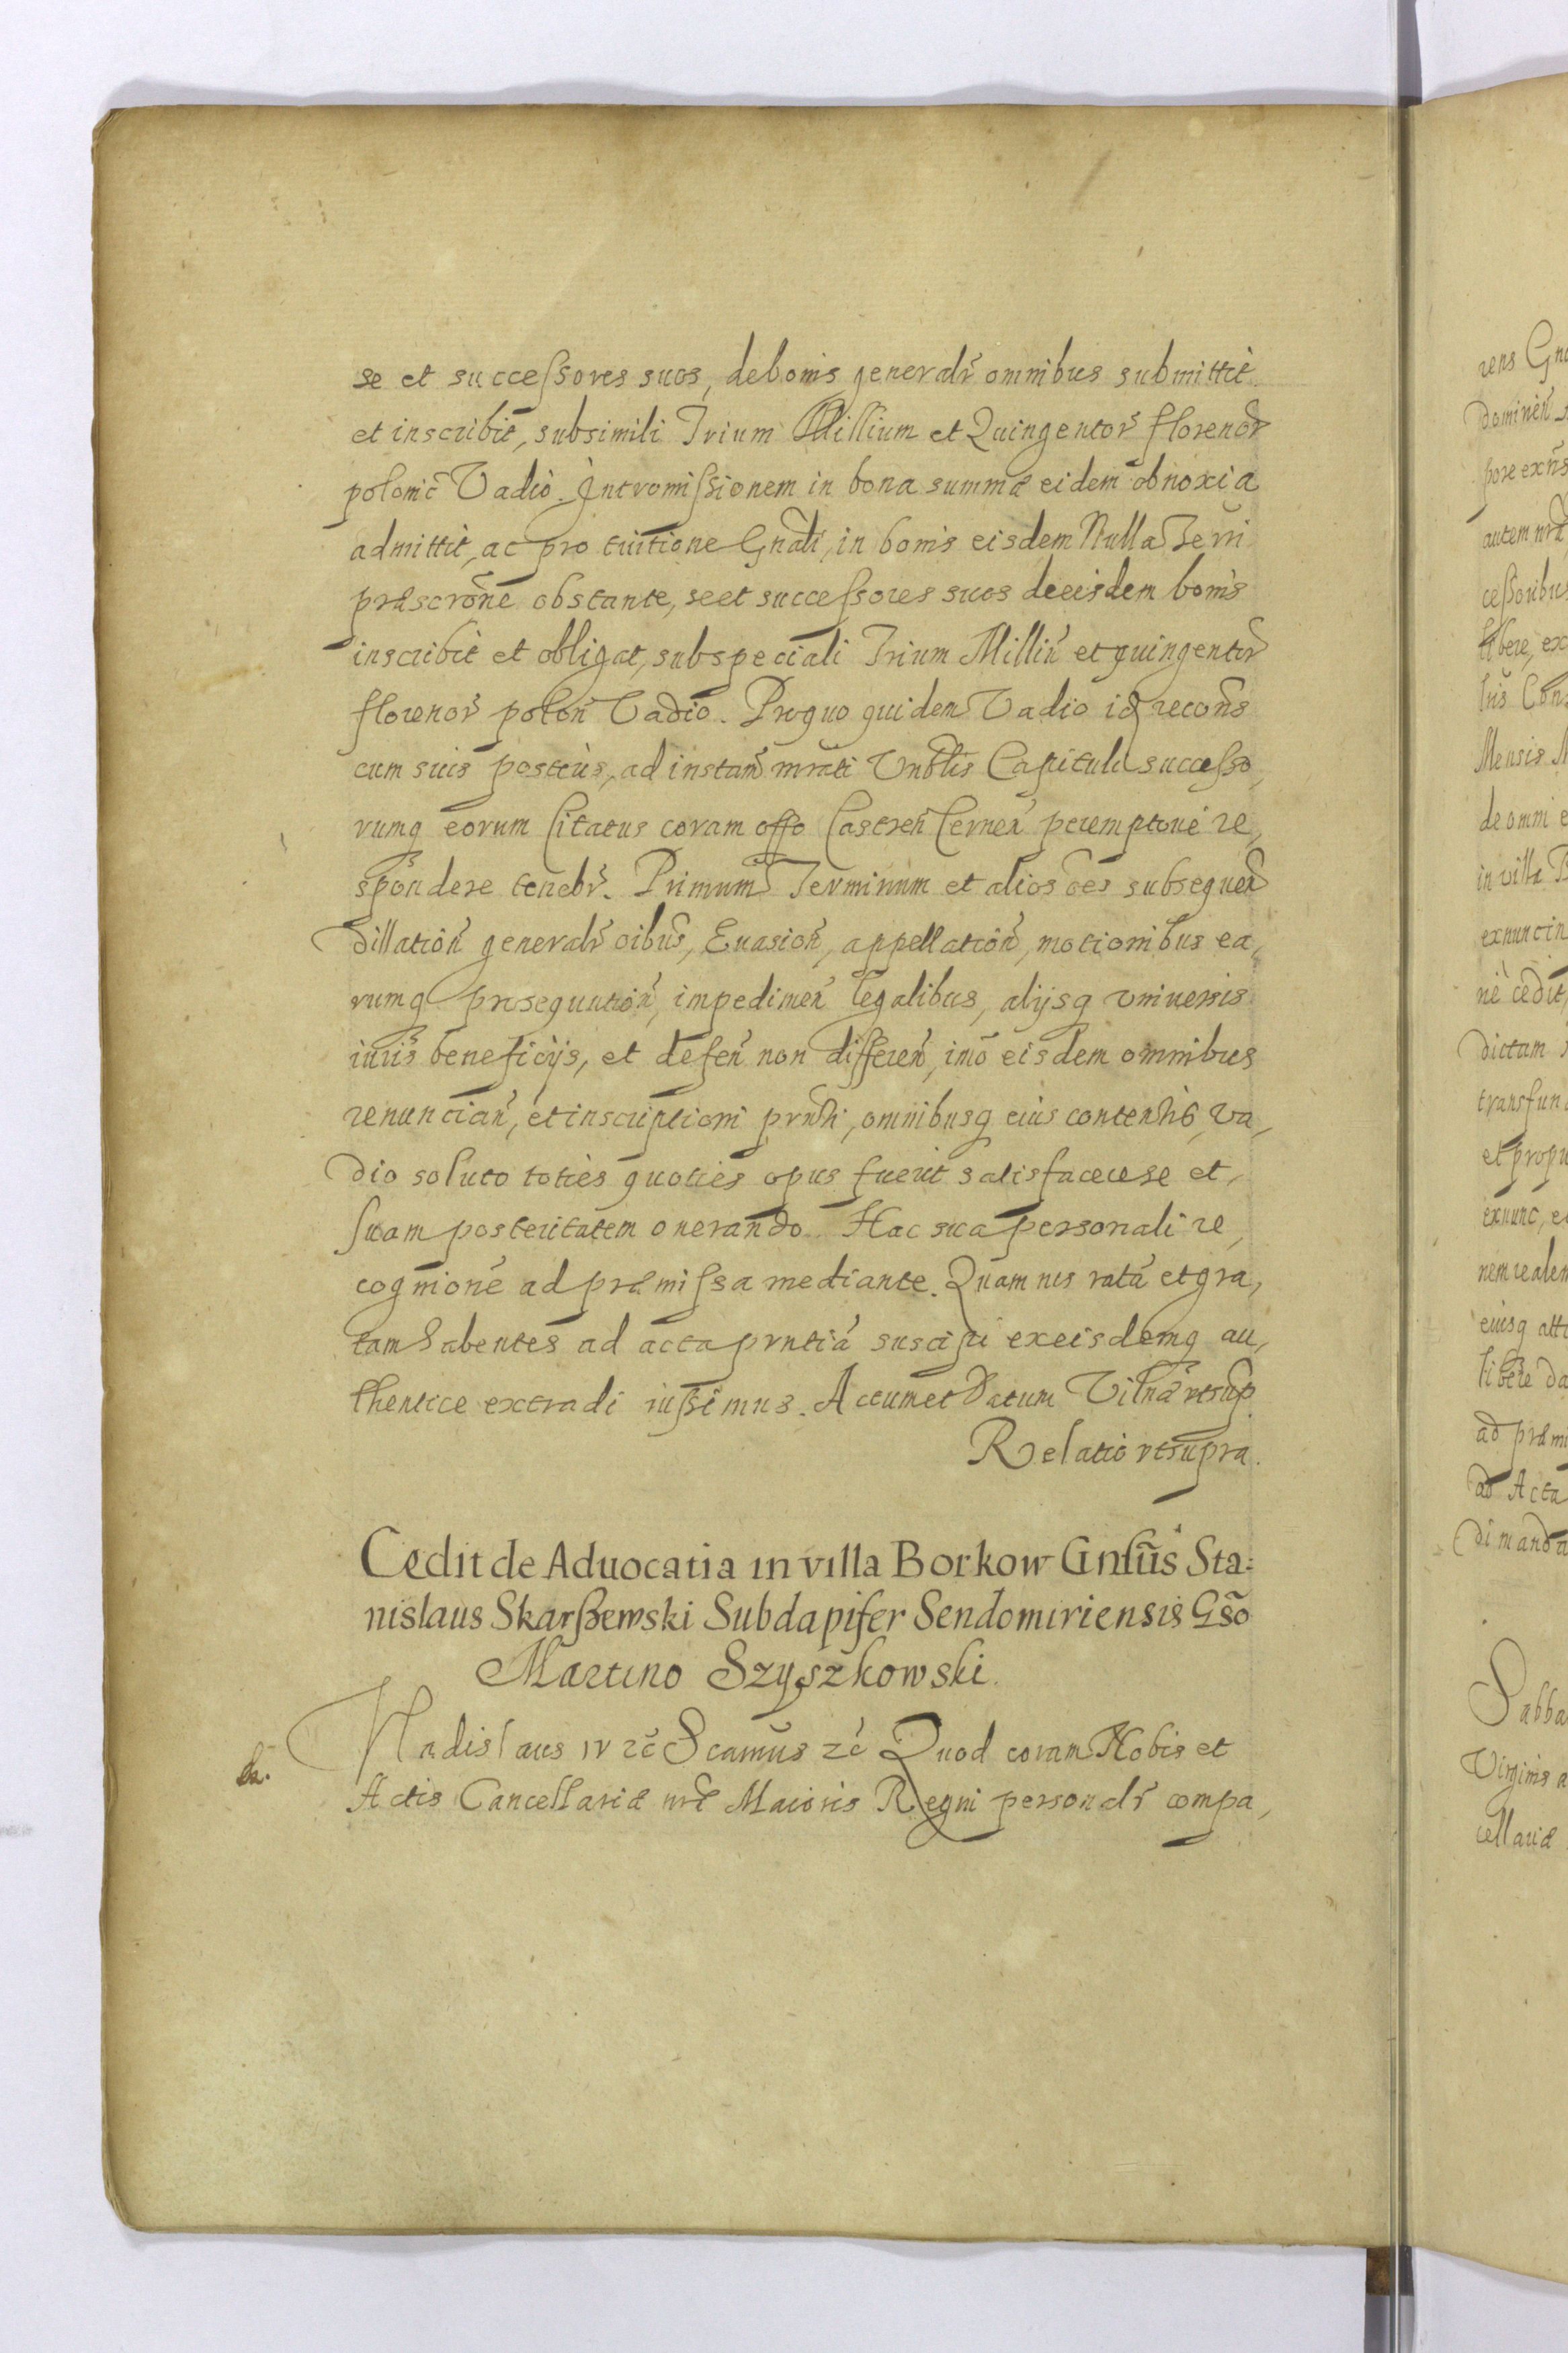 se et successores suos, de bonis generalr omnibus submittit
et inscribit, sub simili Trium Millium et Quingentor florenor
polonic Vadio. Intromissionem in bona summæ eidem obnoxia
admittit, ac pro tuitione Gnali, in bonis eisdem Nulla Terri
præscrone obstante, se et successores suos de eisdem bonis
inscribit et obligat, sub speciali Trium Milliu et quingentor
florenor polon Vadio. Pro quo quidem Vadio id recons
cum suis posteris, ad instan mrati Vnblis Capituli successo,
rumq eorum Citatus coram offo Castren Cernen peremptorie re,
spondere tenebr. Primum Terminum et alios oes subsequen
dillation generalr oibus, Euasion, appellation, motionibus ea,
rumq prosequution, impedimen legalibus, alijsq vniuersis
iuris beneficijs, et defen non differen, imo eisdem omnibus
renuncian, et inscriptioni prnti, omnibusq eius contentis, va,
dio soluto toties quoties opus fuerit satisfacere se et,
suam posteritatem onerando. Hac sua personali re,
cognione ad præmissa mediante. Quam nis rata et gra,
tam habentes ad acta prntia suscipi ex eisdemq au,
thentice extradi iussimus. Actum et Datum Vilnæ vtsup
Relatio vtsupra.
Cedit de Aduocatia in villa Borkow Gnsus Sta:
nislaus Skarszewski Subdapifer Sendomiriensis Gso
Martino Szyszkowski.
Vladislaus IV zc Scamus zc Quod coram Nobis et
Actis Cancellariæ nræ Maioris Regni personalr compa,